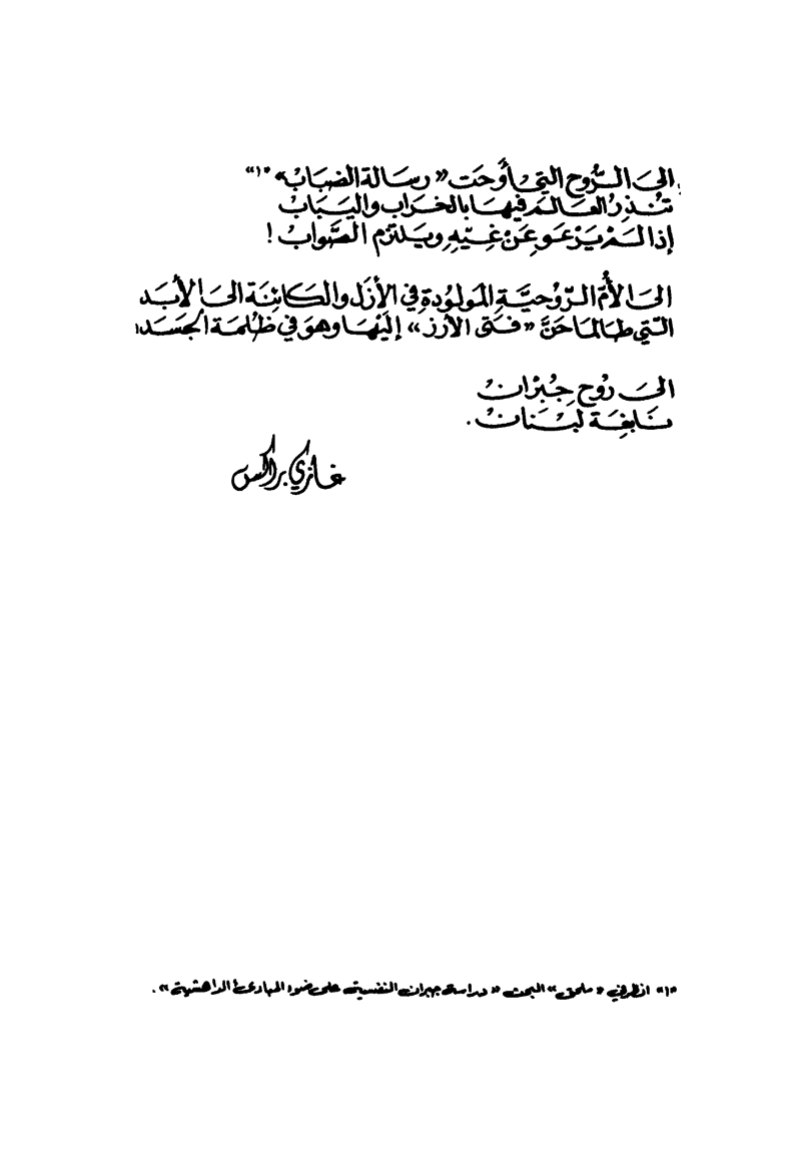 الىَ الرُّوح التي أَوحَت « رسَالة الضبَابْ » «١»
تُنْذِرُ العَالمَ فيهَا بالخرَاب واليَبَابْ
إذا لمْ يَرْعَوِ عَنْ غيّهِ ويَلتزم الصَّوابْ !
الىَ الأُمّ الرّوُحيَّةِ المَولوُدَةِ في الأِزَل والكَائِنَة الىَ الأبَد
التي طَالماَ حَنَّ « فَتَى الأرز » إليْهَا وهوَ في ظُلمَة الجَسَد :
الىَ رُوْح جِبُرْانْ
نَابغِة لبْنَانْ .
غازي براكس
«١» انظر في « ملحق » البحث « دراسة جبران النفسية على ضوء المبادئ الداهشية » .